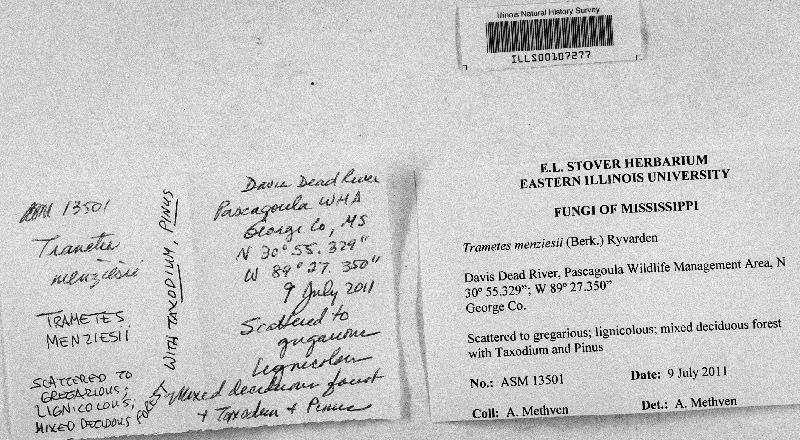 Illinois Natural History Survey
ILLS00107277
ASM 13501
Trametes
menziesii
TRAMETES
MENZIESII
SCATTERED TO
GREGARIOUS;
LIGNICOLOUS;
MIXED DECIDUOUS FOREST
WITH TAXODIUM, PINUS
Davis Dead River
Pascagoula WMA
George Co, MS
N 30° 55. 329"
W 89° 27. 350"
9 July 2011
Scattered to
gregarious
Lignicolous
Mixed deciduous forest
+ Taxodium + Pinus
E.L. STOVER HERBARIUM
EASTERN ILLINOIS UNIVERSITY
FUNGI OF MISSISSIPPI
Trametes menziesii (Berk.) Ryvarden
Davis Dead River, Pascagoula Wildlife Management Area, N
30° 55.329"; W 89° 27.350"
George Co.
Scattered to gregarious; lignicolous; mixed deciduous forest
with Taxodium and Pinus
No.: ASM 13501 Date: 9 July 2011
Coll: A. Methven Det.: A. Methven